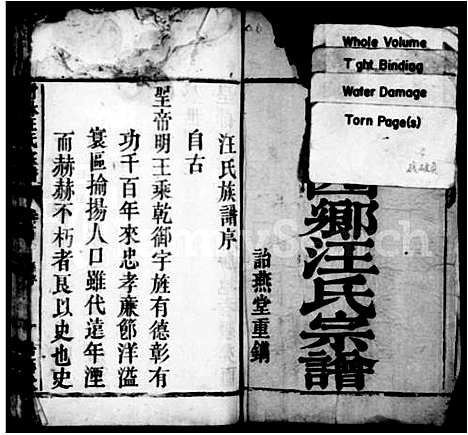 Whole Volume
Tight Binding
Water Damage
Torn Page(s)
西鄉汪氏宗譜
詒燕堂重鐫
汪氏族譜序
自古
聖帝明王乘乾御宇旌有德彰有
功千百年來忠孝廉節洋溢
寰區揄揚人口雖代遠年湮
而赫赫不朽者良以史也史